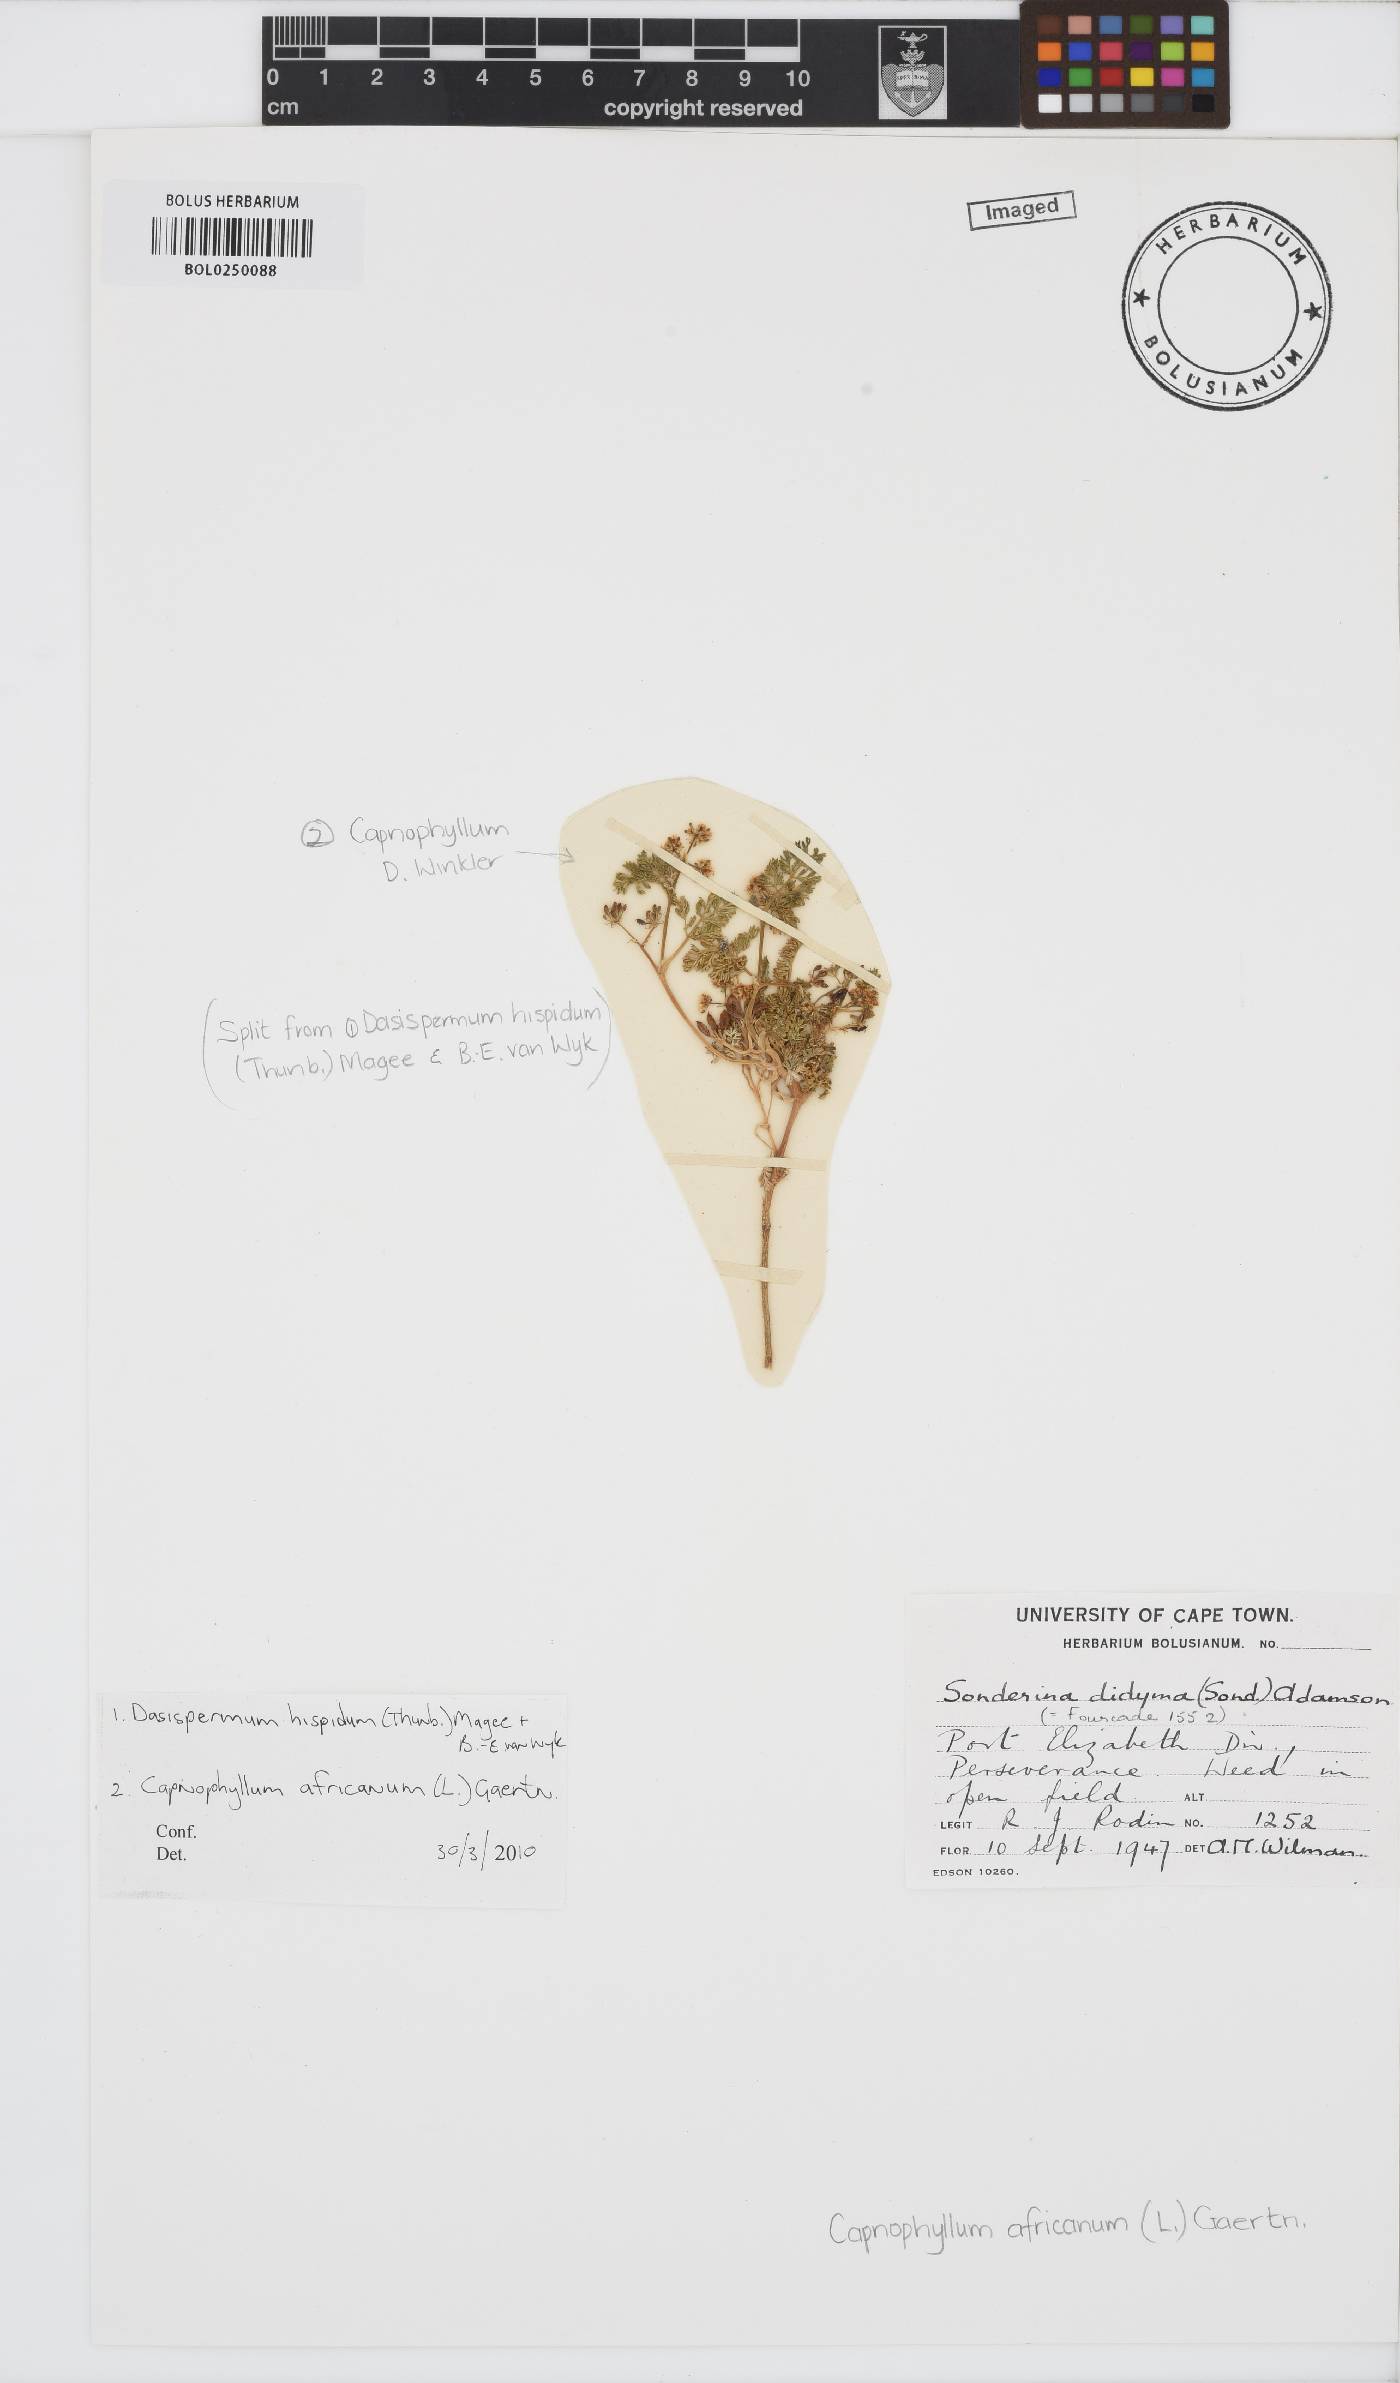 0 1 2 3 4 5 6 7 8 9 10
cm copyright reserved
BOLUS HERBARIUM
BOL0250088
Imaged
HERBARIUM
BOLUSIANUM
② Capnophyllum
D. Winkler
(Split from ① Dasispermum hispidum
(Thunb.) Magee & B.-E. van Wyk)
UNIVERSITY OF CAPE TOWN.
HERBARIUM BOLUSIANUM. NO.
Sonderina didyma (Sond.) Adamson
(= Fourcade 1552)
Port Elizabeth Div.,
Perseverance. Weed in
open field. ALT.
LEGIT R J Rodin NO. 1252
FLOR 10 Sept. 1947 DET A.M. Wilman.
EDSON 10260.
1. Dasispermum hispidum (Thunb.) Magee +
B.-E van Wyk
2. Capnophyllum africanum (L.) Gaertn.
Conf.
Det. 30/3/2010
Capnophyllum africanum (L.) Gaertn.